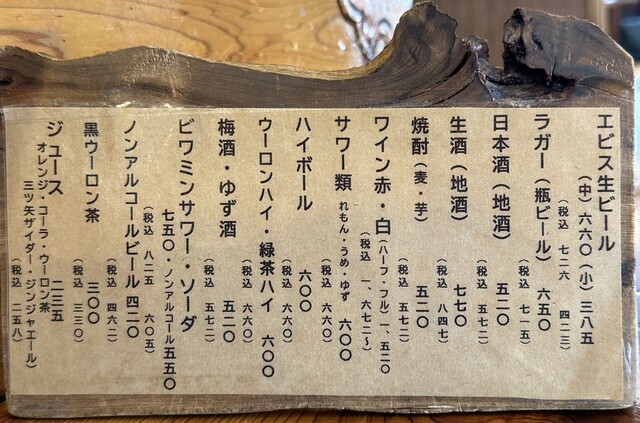 エビス生ビール
(中) 六六〇 (小) 三八五
(税込 七二六 四二三)
ラガー(瓶ビール) 六五〇
(税込 七一五)
日本酒(地酒) 五二〇
(税込 五七二)
生酒(地酒) 七七〇
(税込 八四七)
焼酎(麦・芋) 五二〇
(税込 五七二)
ワイン赤・白(ハーフ・フル)一、五二〇
(税込 一、六七二〜)
サワー類 れもん・うめ・ゆず 六〇〇
(税込 六六〇)
ハイボール 六〇〇
(税込 六六〇)
ウーロンハイ・緑茶ハイ 六〇〇
(税込 六六〇)
梅酒・ゆず酒 五二〇
(税込 五七二)
ビワミンサワー・ソーダ
七五〇・ノンアルコール五五〇
(税込 八二五 六〇五)
ノンアルコールビール 四二〇
(税込 四六二)
黒ウーロン茶 三〇〇
(税込 三三〇)
ジュース 二三五
オレンジ・コーラ・ウーロン茶
三ツ矢サイダー・ジンジャエール)
(税込 二五八)